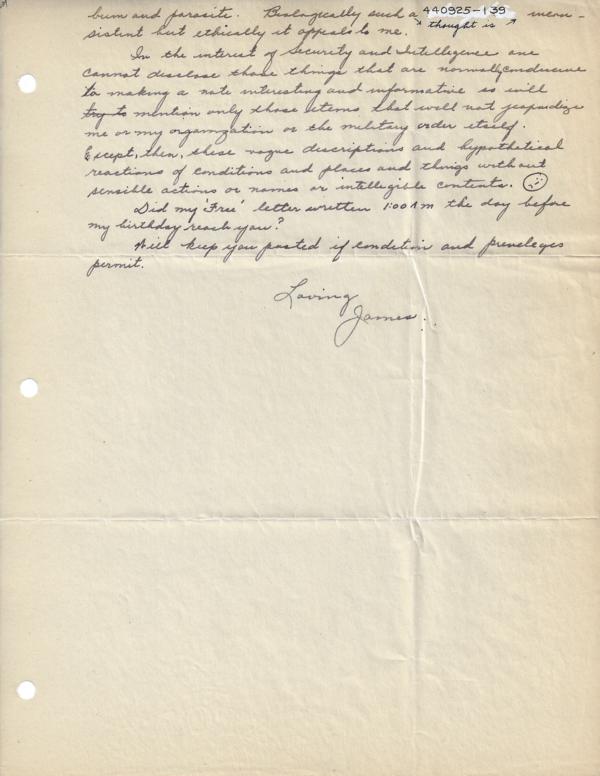 440925-1 39
bum and parasite. Biologically such a thought is incon-
sistent but ethically it appeals to me.
In the interest of Security and Intelligence one
cannot disclose those things that are normally conducive
to making a note interesting and informative so will
try to mention only those items that will not jeopardize
me or my organization or the military order itself.
Except, then, these vague descriptions and hypothetical
reactions of conditions and places and things without
sensible actions or names or intelligible contents.
Did my 'Free' letter written 1:00 AM the day before
my birthday reach you?
Will keep you posted if condition and priveleges
permit.
Loving
James.